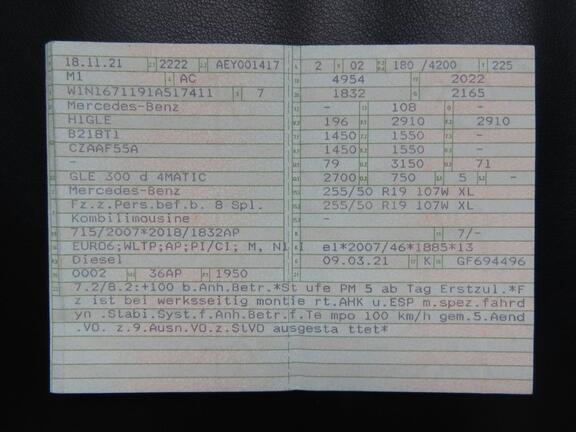 18.11.21 2222 AEY001417 2 02 180 /4200 225
M1 AC 4954 2022
W1N1671191A517411 7 1832 2165
Mercedes-Benz - 108 -
H1GLE 196 2910 2910
B21BT1 1450 1550 -
CZAAF55A 1450 1550 -
- 79 3150 71
GLE 300 d 4MATIC 2700 750 5 -
Mercedes-Benz 255/50 R19 107W XL
Fz.z.Pers.bef.b. 8 Spl. 255/50 R19 107W XL
Kombilimousine -
715/2007*2018/1832AP 7/-
EURO6;WLTP;AP;PI/CI; M, N1 I e1*2007/46*1885*13
Diesel 09.03.21 K GF694496
0002 36AP 1950
7.2/8.2:+100 b.Anh.Betr.*St ufe PM 5 ab Tag Erstzul.*F
z ist bei werksseitig montie rt.AHK u.ESP m.spez.fahrd
yn .Stabi.Syst.f.Anh.Betr.f.Te mpo 100 km/h gem.5.Aend
.VO. z.9.Ausn.VO.z.StVO ausgesta ttet*